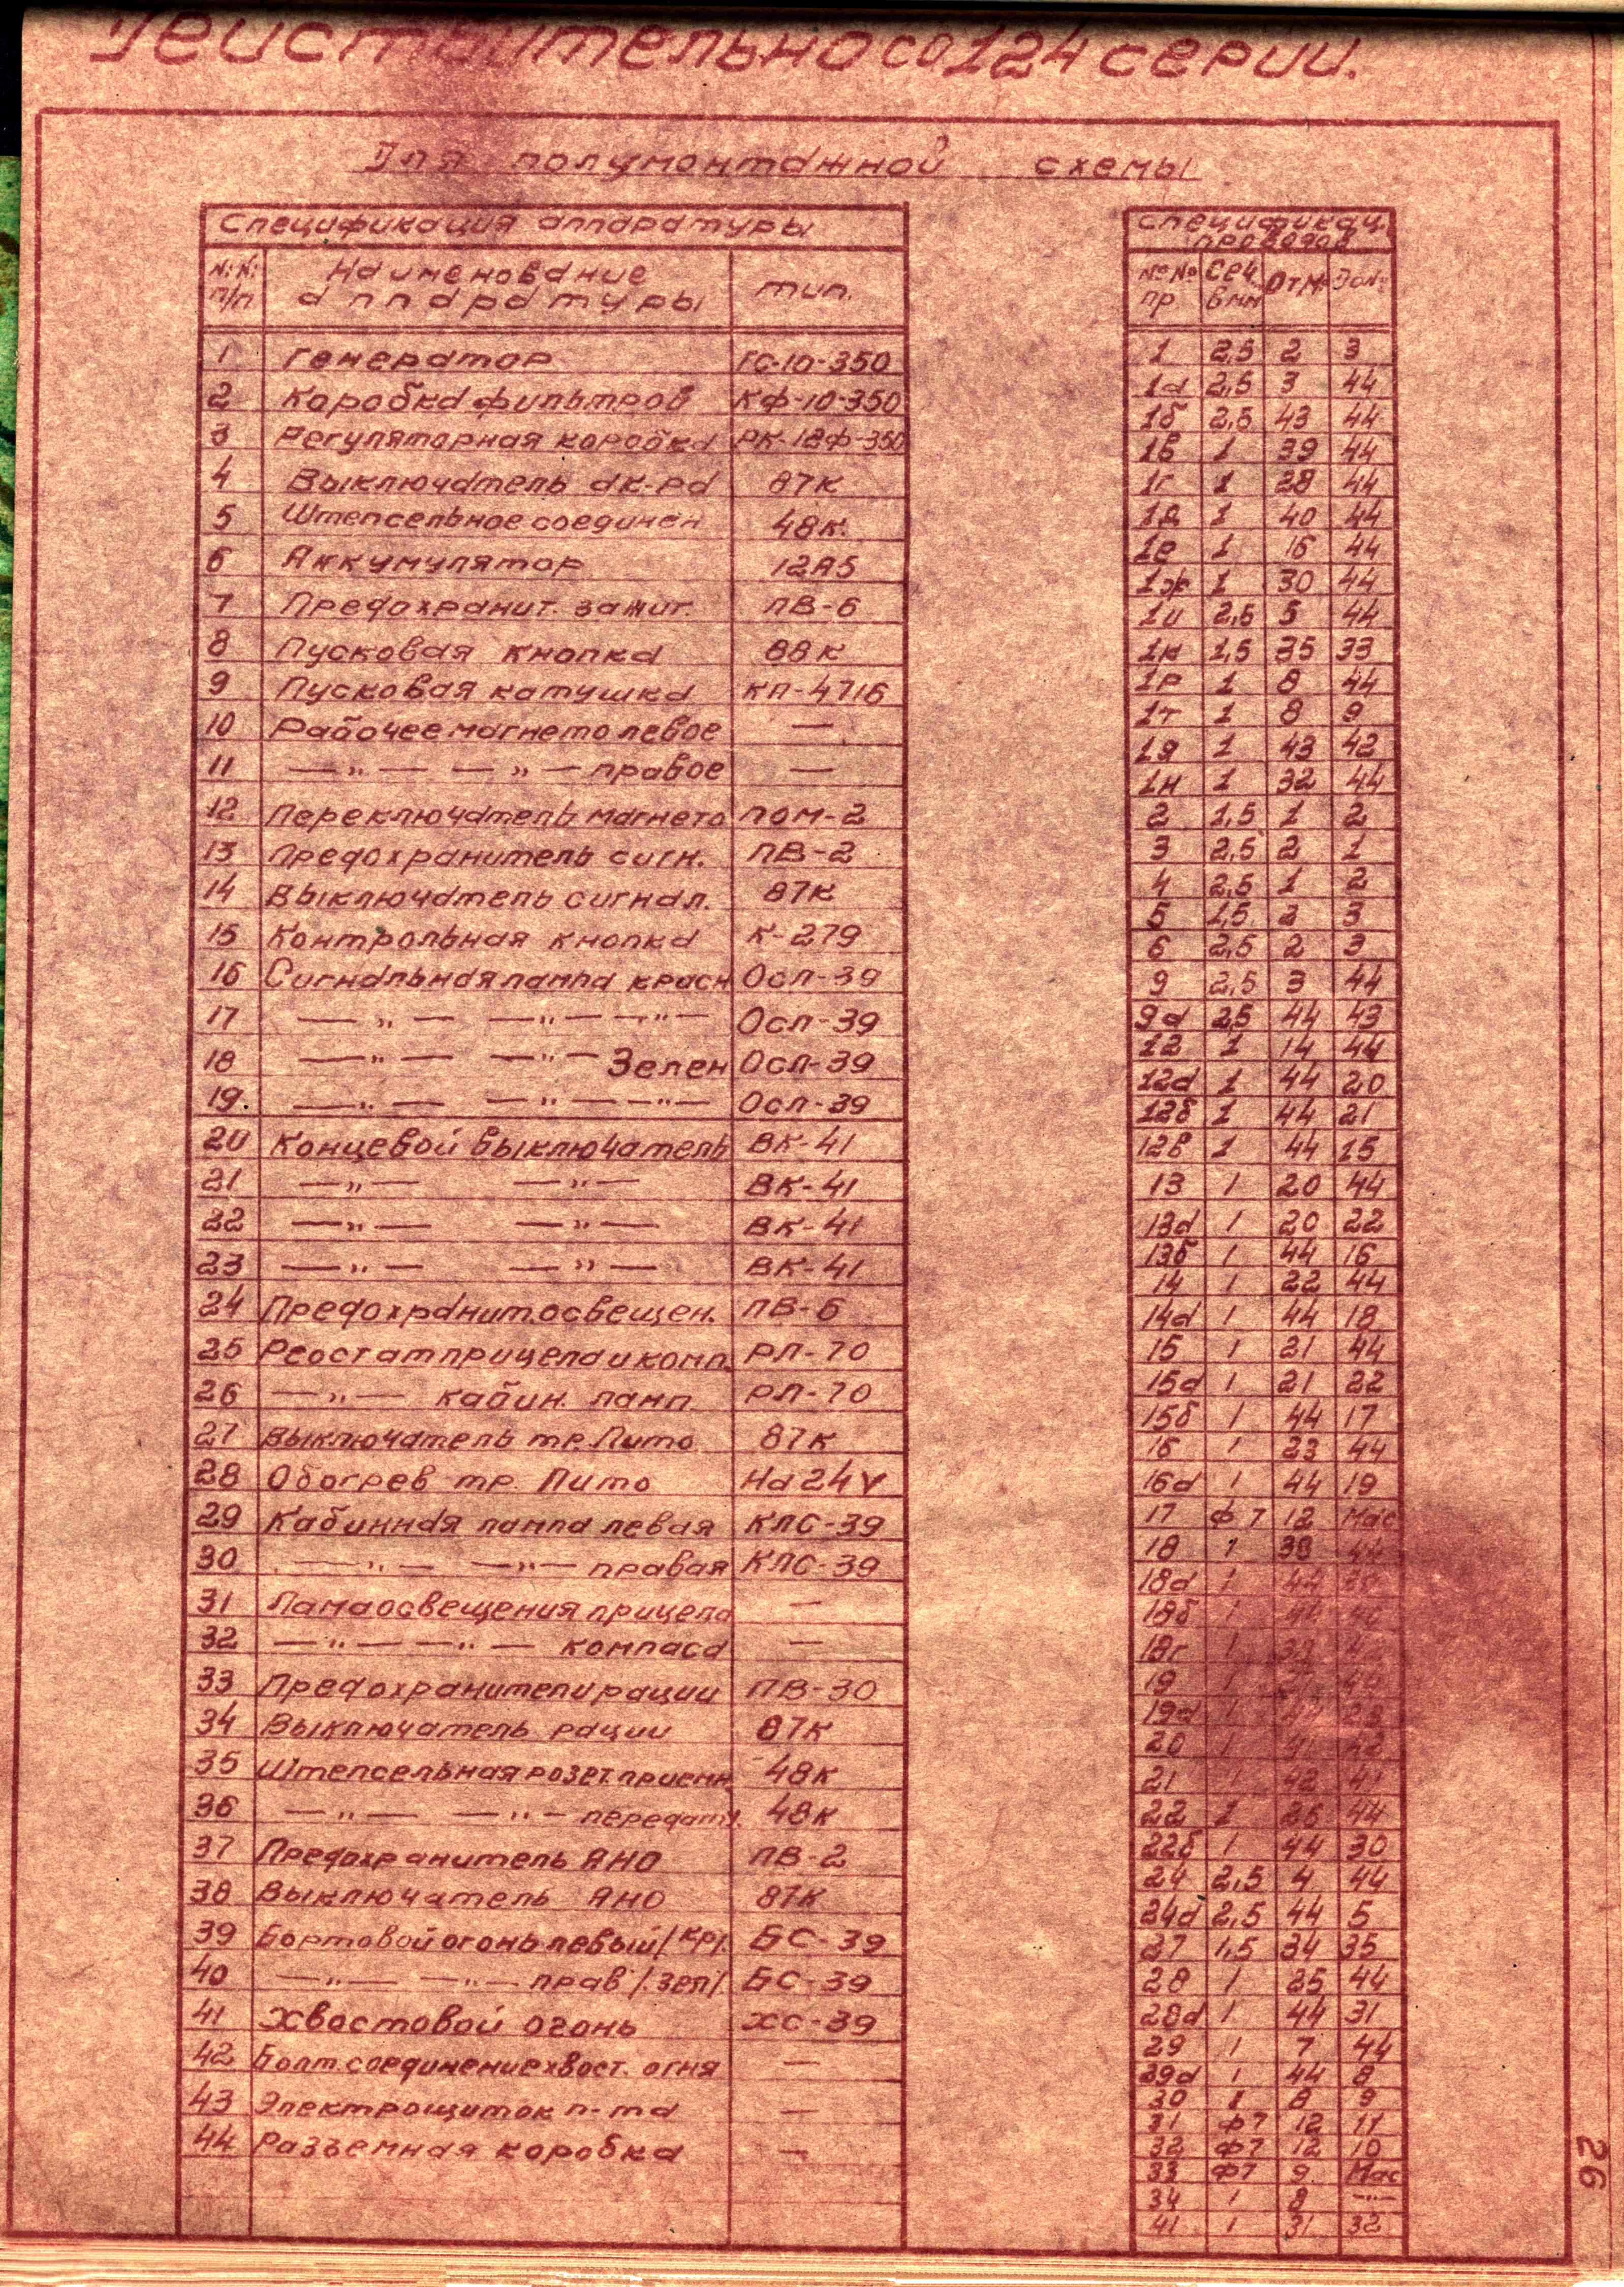 Действительно со 124 серии.
Для полумонтажной схемы
Спецификация аппаратуры
№:№: п/п Наименование аппаратуры тип.
1 Генератор ГС-10-350
2 Коробка фильтров КФ-10-350
3 Регуляторная коробка РК-12Ф-350
4 Выключатель ак-ра 87К
5 Штепсельное соединен 48К.
6 Аккумулятор 12А5
7 Предохранит. зажиг. ПВ-6
8 Пусковая кнопка 88К
9 Пусковая катушка КП-4716
10 Рабочее магнето левое —
11 —"— —"— правое —
12 Переключатель магнето ПОМ-2
13 Предохранитель сигн. ПВ-2
14 Выключатель сигнал. 87К
15 Контрольная кнопка К-279
16 Сигнальная лампа красн ОСЛ-39
17 —"— —"— —"— ОСЛ-39
18 —"— —"— Зелен ОСЛ-39
19. —"— —"— —"— ОСЛ-39
20 Концевой выключатель ВК-41
21 —"— —"— ВК-41
22 —"— —"— ВК-41
23 —"— —"— ВК-41
24 Предохранит.освещен. ПВ-6
25 Реостат прицела и комп. РЛ-70
26 —"— кабин. ламп РЛ-70
27 Выключатель тр. Пито 87К
28 Обогрев тр. Пито На 24V
29 Кабинная лампа левая КЛС-39
30 —"— —"— правая КЛС-39
31 Лампа освещения прицела —
32 —"— —"— компаса —
33 Предохранители рации ПВ-30
34 Выключатель рации 87К
35 Штепсельная розет. приемн 48К
36 —"— —"— передатч. 48К
37 Предохранитель АНО ПВ-2
38 Выключатель АНО 87К
39 Бортовой огонь левый /кр/. БС-39
40 —"— —"— прав /.зел/. БС-39
41 Хвостовой огонь ХС-39
42 Болт. соединение хвост. огня —
43 Электрощиток п-та —
44 Разъемная коробка —
Спецификац.
проводов
№№ пр Сеч. в мм От№ До№:
1 2,5 2 3
1а 2,5 3 44
1б 2,5 43 44
1в 1 39 44
1г 1 28 44
1д 1 40 44
1е 1 16 44
1ж 1 30 44
1и 2,5 5 44
1к 1,5 35 33
1р 1 8 44
1т 1 8 9
1д 1 43 42
1н 1 32 44
2 1,5 1 2
3 2,5 2 1
4 2,5 1 2
5 1,5 2 3
6 2,5 2 3
9 2,5 3 44
9а 2,5 44 43
12 1 14 44
12а 1 44 20
12б 1 44 21
12в 1 44 15
13 1 20 44
13а 1 20 22
13б 1 44 16
14 1 22 44
14а 1 44 18
15 1 21 44
15а 1 21 22
15б 1 44 17
16 1 23 44
16а 1 44 19
17 Ф7 12 Мас
18 1 38
18а 1 44
18б 1
18г 1
19 1
19а 1
20 1 41 42
21 1 42 41
22 1 26 44
22б 1 44 30
24 2,5 4 44
24а 2,5 44 5
27 1,5 34 35
28 1 25 44
28а 1 44 31
29 1 7 44
29а 1 44 8
30 1 8 9
31 Ф7 12 11
32 Ф7 12 10
33 Ф7 9 Мас
34 1 8 —"—
41 1 31 32
26